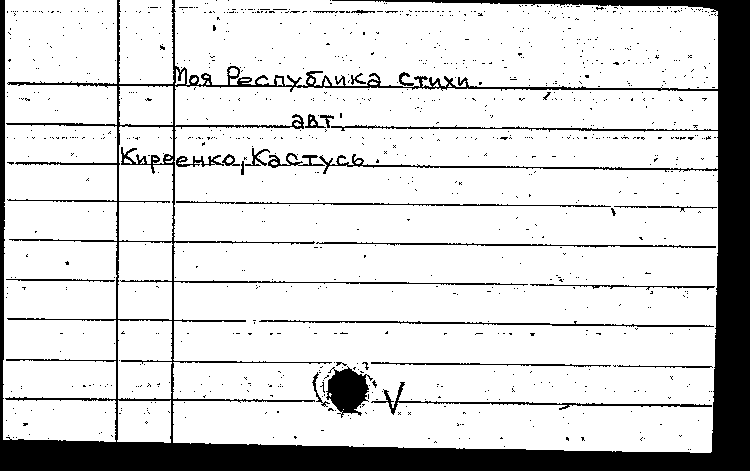 Моя Республика стихи.
авт:
Киреенко, Кастусь.
V